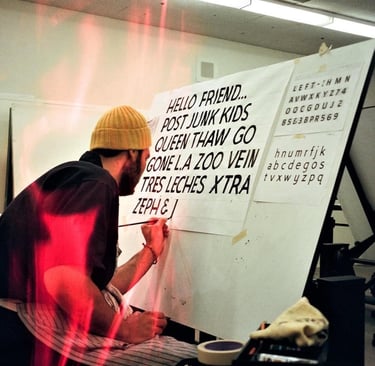 HELLO FRIEND..
POST JUNK KIDS
QUEEN THAW GO
GONE L.A ZOO VEIN
TRES LECHES XTRA
ZEPH & J
LEFT-!HMN
AVWXKYZ74
ODCGDUJ2
BS83BPR569
hnumrfjk
abcdegos
tvwxyzpq